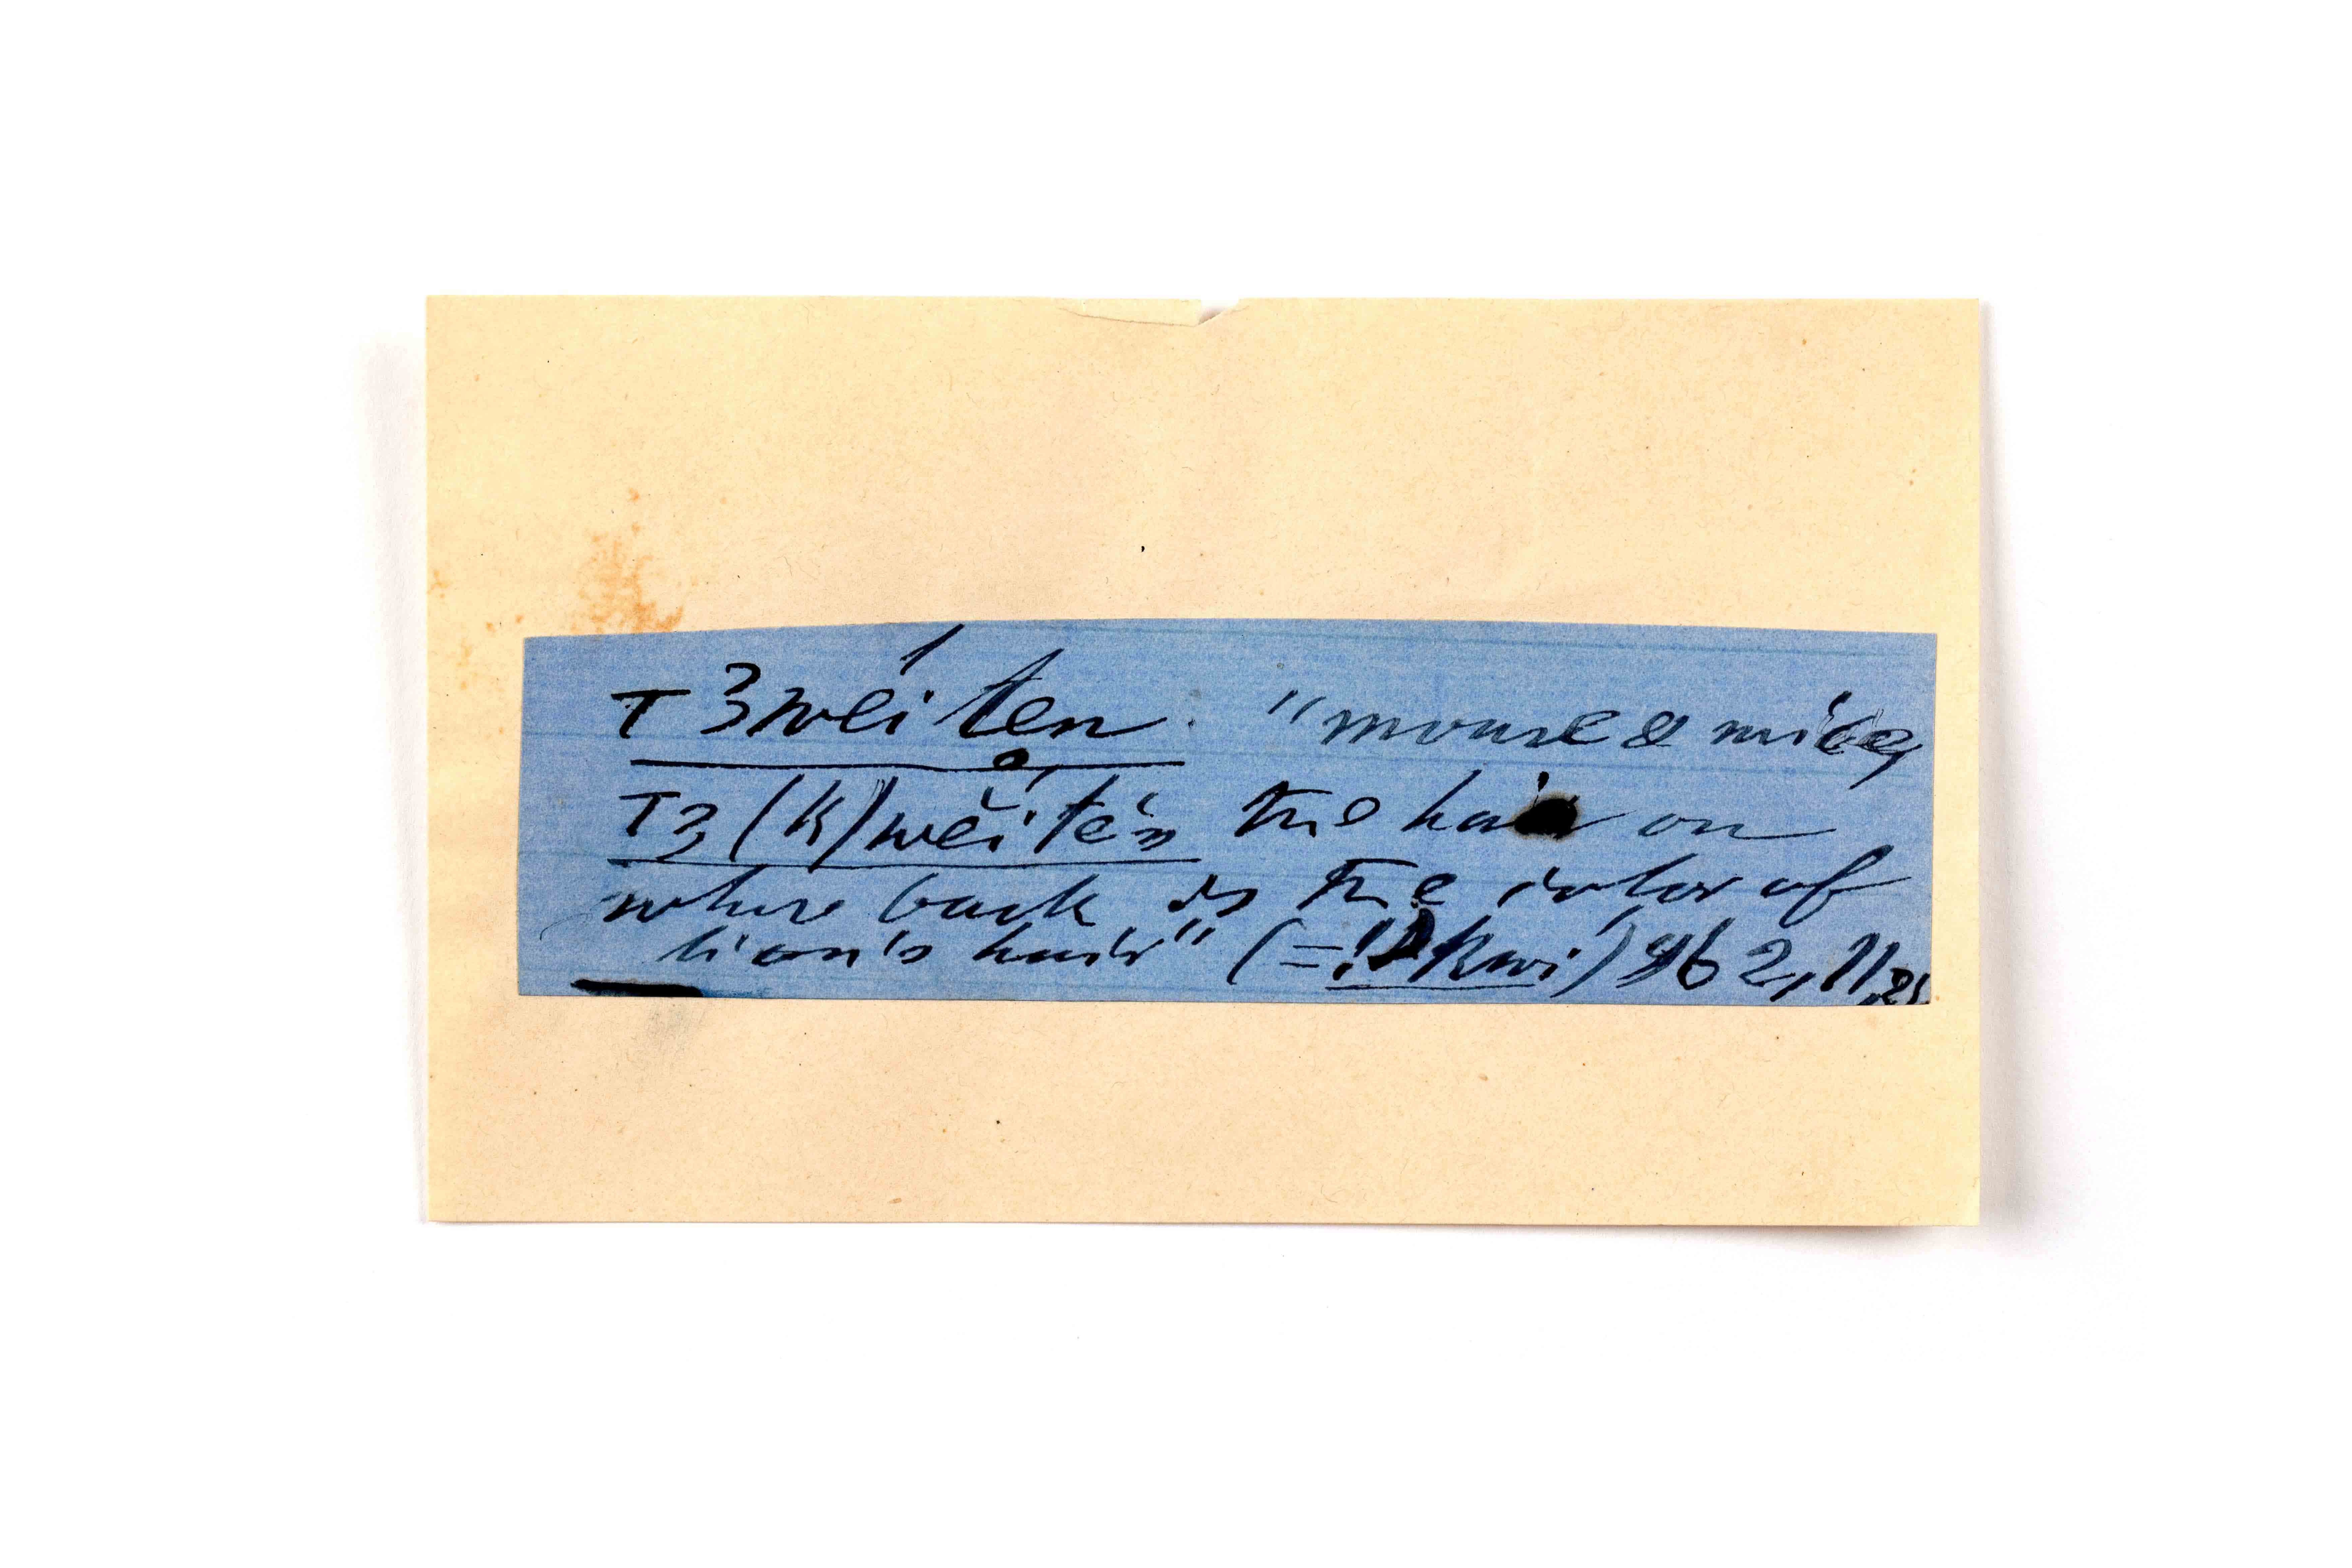 Ʇ3wéi ten. "mouse & mice,
Ʇ3(k)wĕi tĕn the hair on
whose back is the color of
lion's hair" (= kwi) 962, 11,